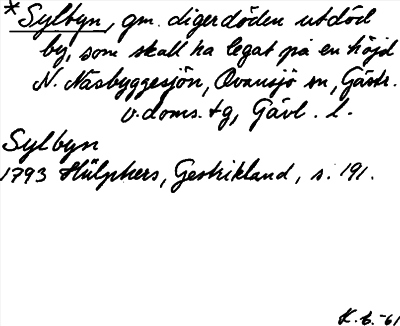 *Sylbyn, gm. digerdöden utdöd
by, som skall ha legat på en höjd
N. Näsbyggesjön, Ovansjö sn, Gästr.
v. doms. tg, Gävl. l.
Sylbyn
1793 Hülphers, Gestrikland, s. 191.
K. L. -61